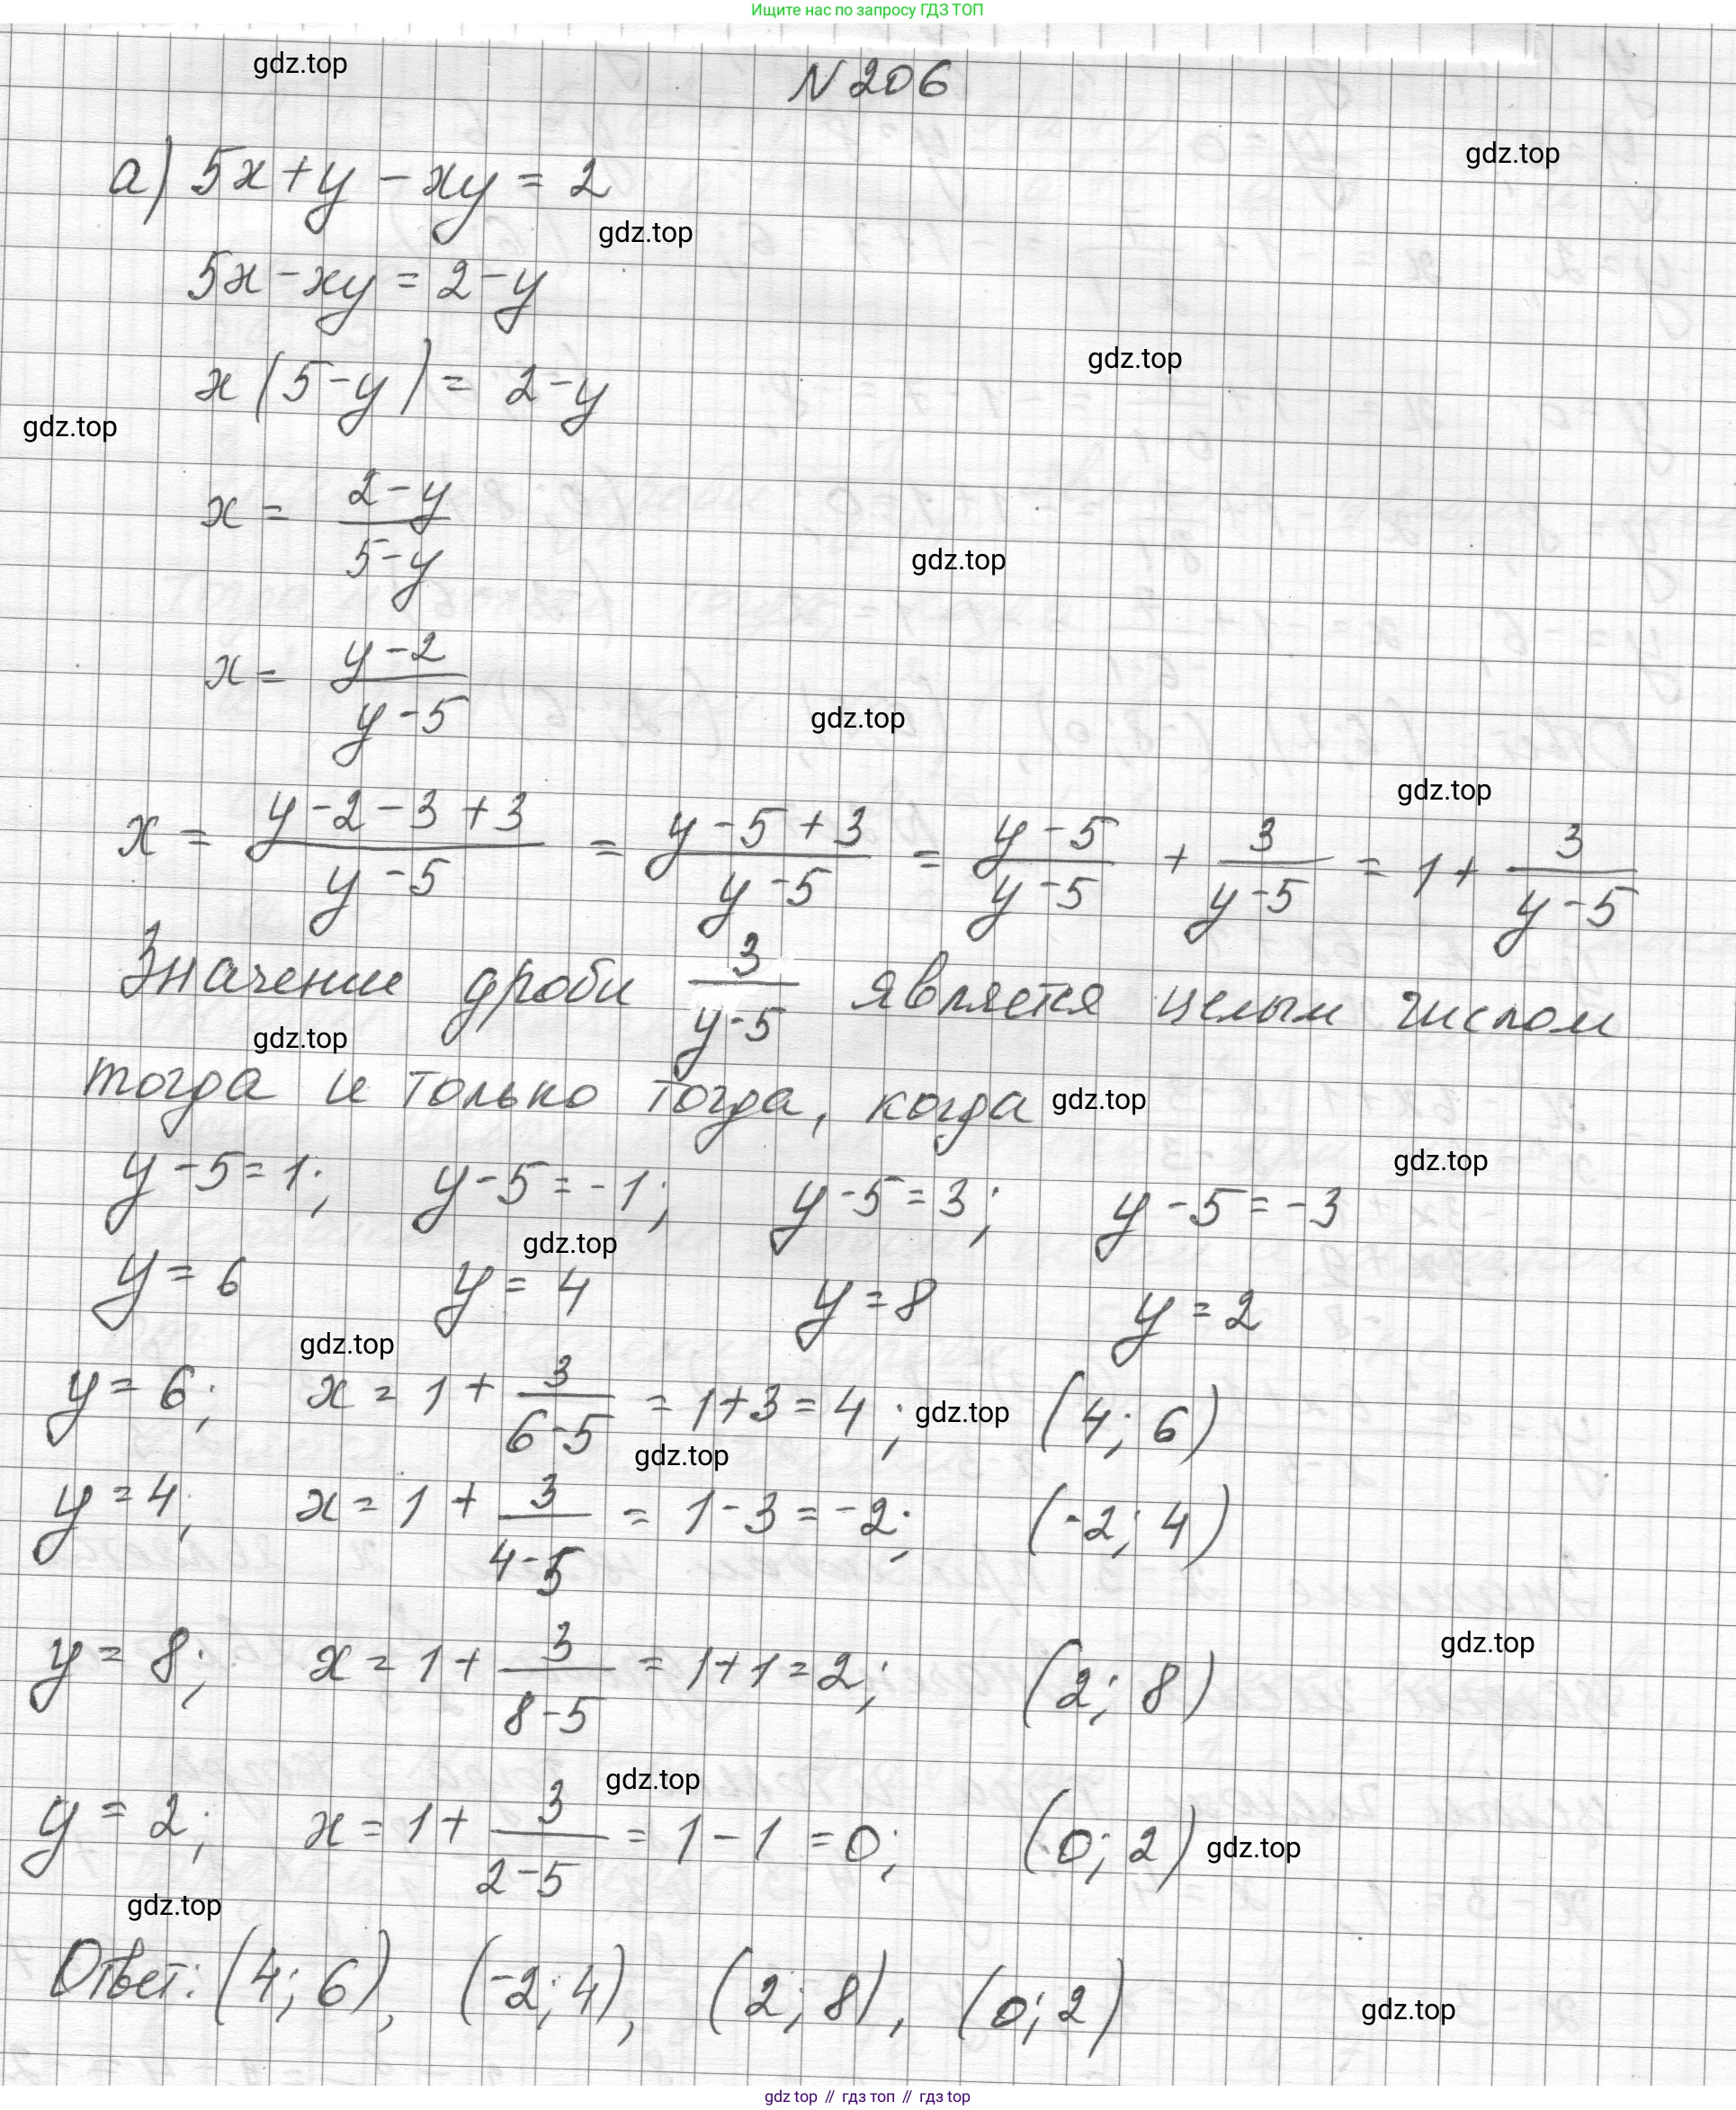 Ищите нас по запросу ГДЗ ТОП
gdz.top
N 206
gdz.top
а) 5x + y - xy = 2
gdz.top
5x - xy = 2 - y
gdz.top
x (5 - y) = 2 - y
gdz.top
x = (2 - y)/(5 - y)
gdz.top
x = (y - 2)/(y - 5)
gdz.top
gdz.top
x = (y - 2 - 3 + 3)/(y - 5) = (y - 5 + 3)/(y - 5) = (y - 5)/(y - 5) + 3/(y - 5) = 1 + 3/(y - 5)
Значение дроби 3/(y - 5) является целым числом
gdz.top
тогда и только тогда, когда gdz.top
gdz.top
y - 5 = 1; y - 5 = -1; y - 5 = 3; y - 5 = -3
gdz.top
y = 6 y = 4 y = 8 y = 2
gdz.top
y = 6; x = 1 + 3/(6 - 5) = 1 + 3 = 4; gdz.top (4; 6)
gdz.top
y = 4; x = 1 + 3/(4 - 5) = 1 - 3 = -2; (-2; 4)
gdz.top
y = 8; x = 1 + 3/(8 - 5) = 1 + 1 = 2; (2; 8)
gdz.top
y = 2; x = 1 + 3/(2 - 5) = 1 - 1 = 0; (0; 2) gdz.top
gdz.top
Ответ: (4; 6), (-2; 4), (2; 8), (0; 2)
gdz.top
gdz top // гдз топ // гдз top